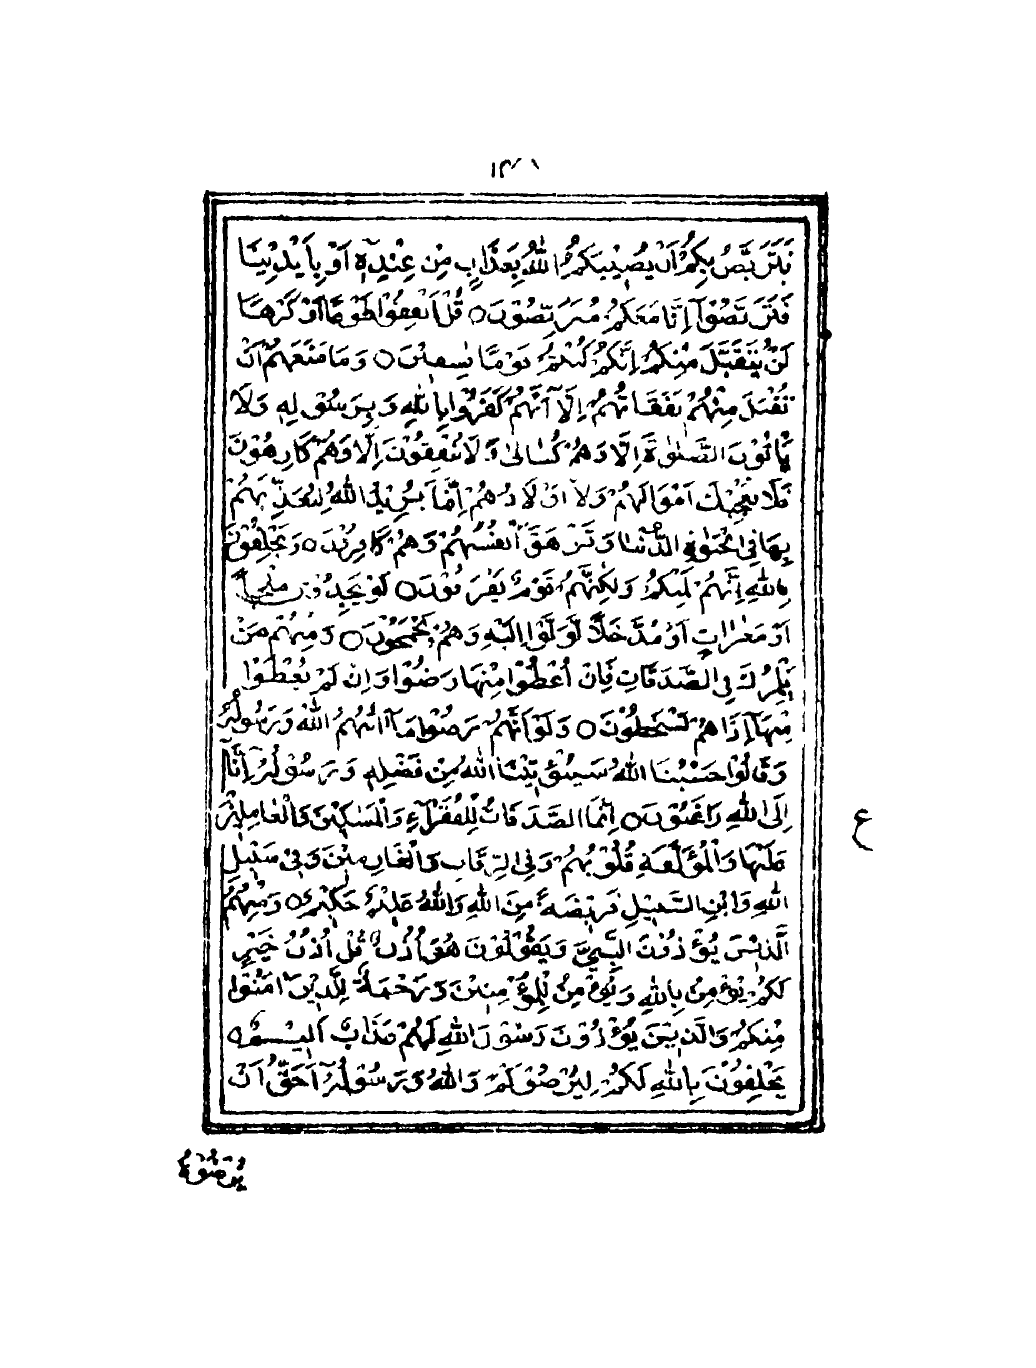 نَتَرَبَّصُ بِكُمْ اَنْ يُصِيْبَكُمُ اللّٰهُ بِعَذَابٍ مِّنْ عِنْدِهٖٓ اَوْ بِاَيْدِيْنَا
فَتَرَبَّصُوْٓا اِنَّا مَعَكُمْ مُّتَرَبِّصُوْنَ ○ قُلْ اَنْفِقُوْا طَوْعًا اَوْ كَرْهًا
لَّنْ يُّتَقَبَّلَ مِنْكُمْ اِنَّكُمْ كُنْتُمْ قَوْمًا فٰسِقِيْنَ ○ وَمَا مَنَعَهُمْ اَنْ
تُقْبَلَ مِنْهُمْ نَفَقَاتُهُمْ اِلَّآ اَنَّهُمْ كَفَرُوْا بِاللّٰهِ وَبِرَسُوْلِهٖ وَلَا
يَاْتُوْنَ الصَّلٰوةَ اِلَّا وَهُمْ كُسَالٰى وَلَا يُنْفِقُوْنَ اِلَّا وَهُمْ كَارِهُوْنَ
فَلَا تُعْجِبْكَ اَمْوَالُهُمْ وَلَآ اَوْلَادُهُمْ اِنَّمَا يُرِيْدُ اللّٰهُ لِيُعَذِّبَهُمْ
بِهَا فِى الْحَيٰوةِ الدُّنْيَا وَتَزْهَقَ اَنْفُسُهُمْ وَهُمْ كَافِرُوْنَ ○ وَيَحْلِفُوْنَ
بِاللّٰهِ اِنَّهُمْ لَمِنْكُمْ وَلٰكِنَّهُمْ قَوْمٌ يَّفْرَقُوْنَ ○ لَوْ يَجِدُوْنَ مَلْجَاً
اَوْ مَغَارَاتٍ اَوْ مُدَّخَلًا لَّوَلَّوْا اِلَيْهِ وَهُمْ يَجْمَحُوْنَ ○ وَمِنْهُمْ مَّنْ
يَّلْمِزُكَ فِى الصَّدَقَاتِ فَاِنْ اُعْطُوْا مِنْهَا رَضُوْا وَاِنْ لَّمْ يُعْطَوْا
مِنْهَآ اِذَا هُمْ يَسْخَطُوْنَ ○ وَلَوْ اَنَّهُمْ رَضُوْا مَآ اٰتٰهُمُ اللّٰهُ وَرَسُوْلُهٗ
وَقَالُوْا حَسْبُنَا اللّٰهُ سَيُؤْتِيْنَا اللّٰهُ مِنْ فَضْلِهٖ وَرَسُوْلُهٗٓ اِنَّآ
اِلَى اللّٰهِ رَاغِبُوْنَ ○ اِنَّمَا الصَّدَقَاتُ لِلْفُقَرَآءِ وَالْمَسٰكِيْنَ وَالْعَامِلِيْنَ
عَلَيْهَا وَالْمُؤَلَّفَةِ قُلُوْبُهُمْ وَفِى الرِّقَابِ وَالْغَارِمِيْنَ وَفِىْ سَبِيْلِ
اللّٰهِ وَابْنِ السَّبِيْلِ فَرِيْضَةً مِّنَ اللّٰهِ وَاللّٰهُ عَلِيْمٌ حَكِيْمٌ ○ وَمِنْهُمُ
الَّذِيْنَ يُؤْذُوْنَ النَّبِىَّ وَيَقُوْلُوْنَ هُوَ اُذُنٌ قُلْ اُذُنُ خَيْرٍ
لَّكُمْ يُؤْمِنُ بِاللّٰهِ وَيُؤْمِنُ لِلْمُؤْمِنِيْنَ وَرَحْمَةٌ لِّلَّذِيْنَ اٰمَنُوْا
مِنْكُمْ وَالَّذِيْنَ يُؤْذُوْنَ رَسُوْلَ اللّٰهِ لَهُمْ عَذَابٌ اَلِيْمٌ ○
يَحْلِفُوْنَ بِاللّٰهِ لَكُمْ لِيُرْضُوْكُمْ وَاللّٰهُ وَرَسُوْلُهٗٓ اَحَقُّ اَنْ
ع
يُرْضُوْهُ